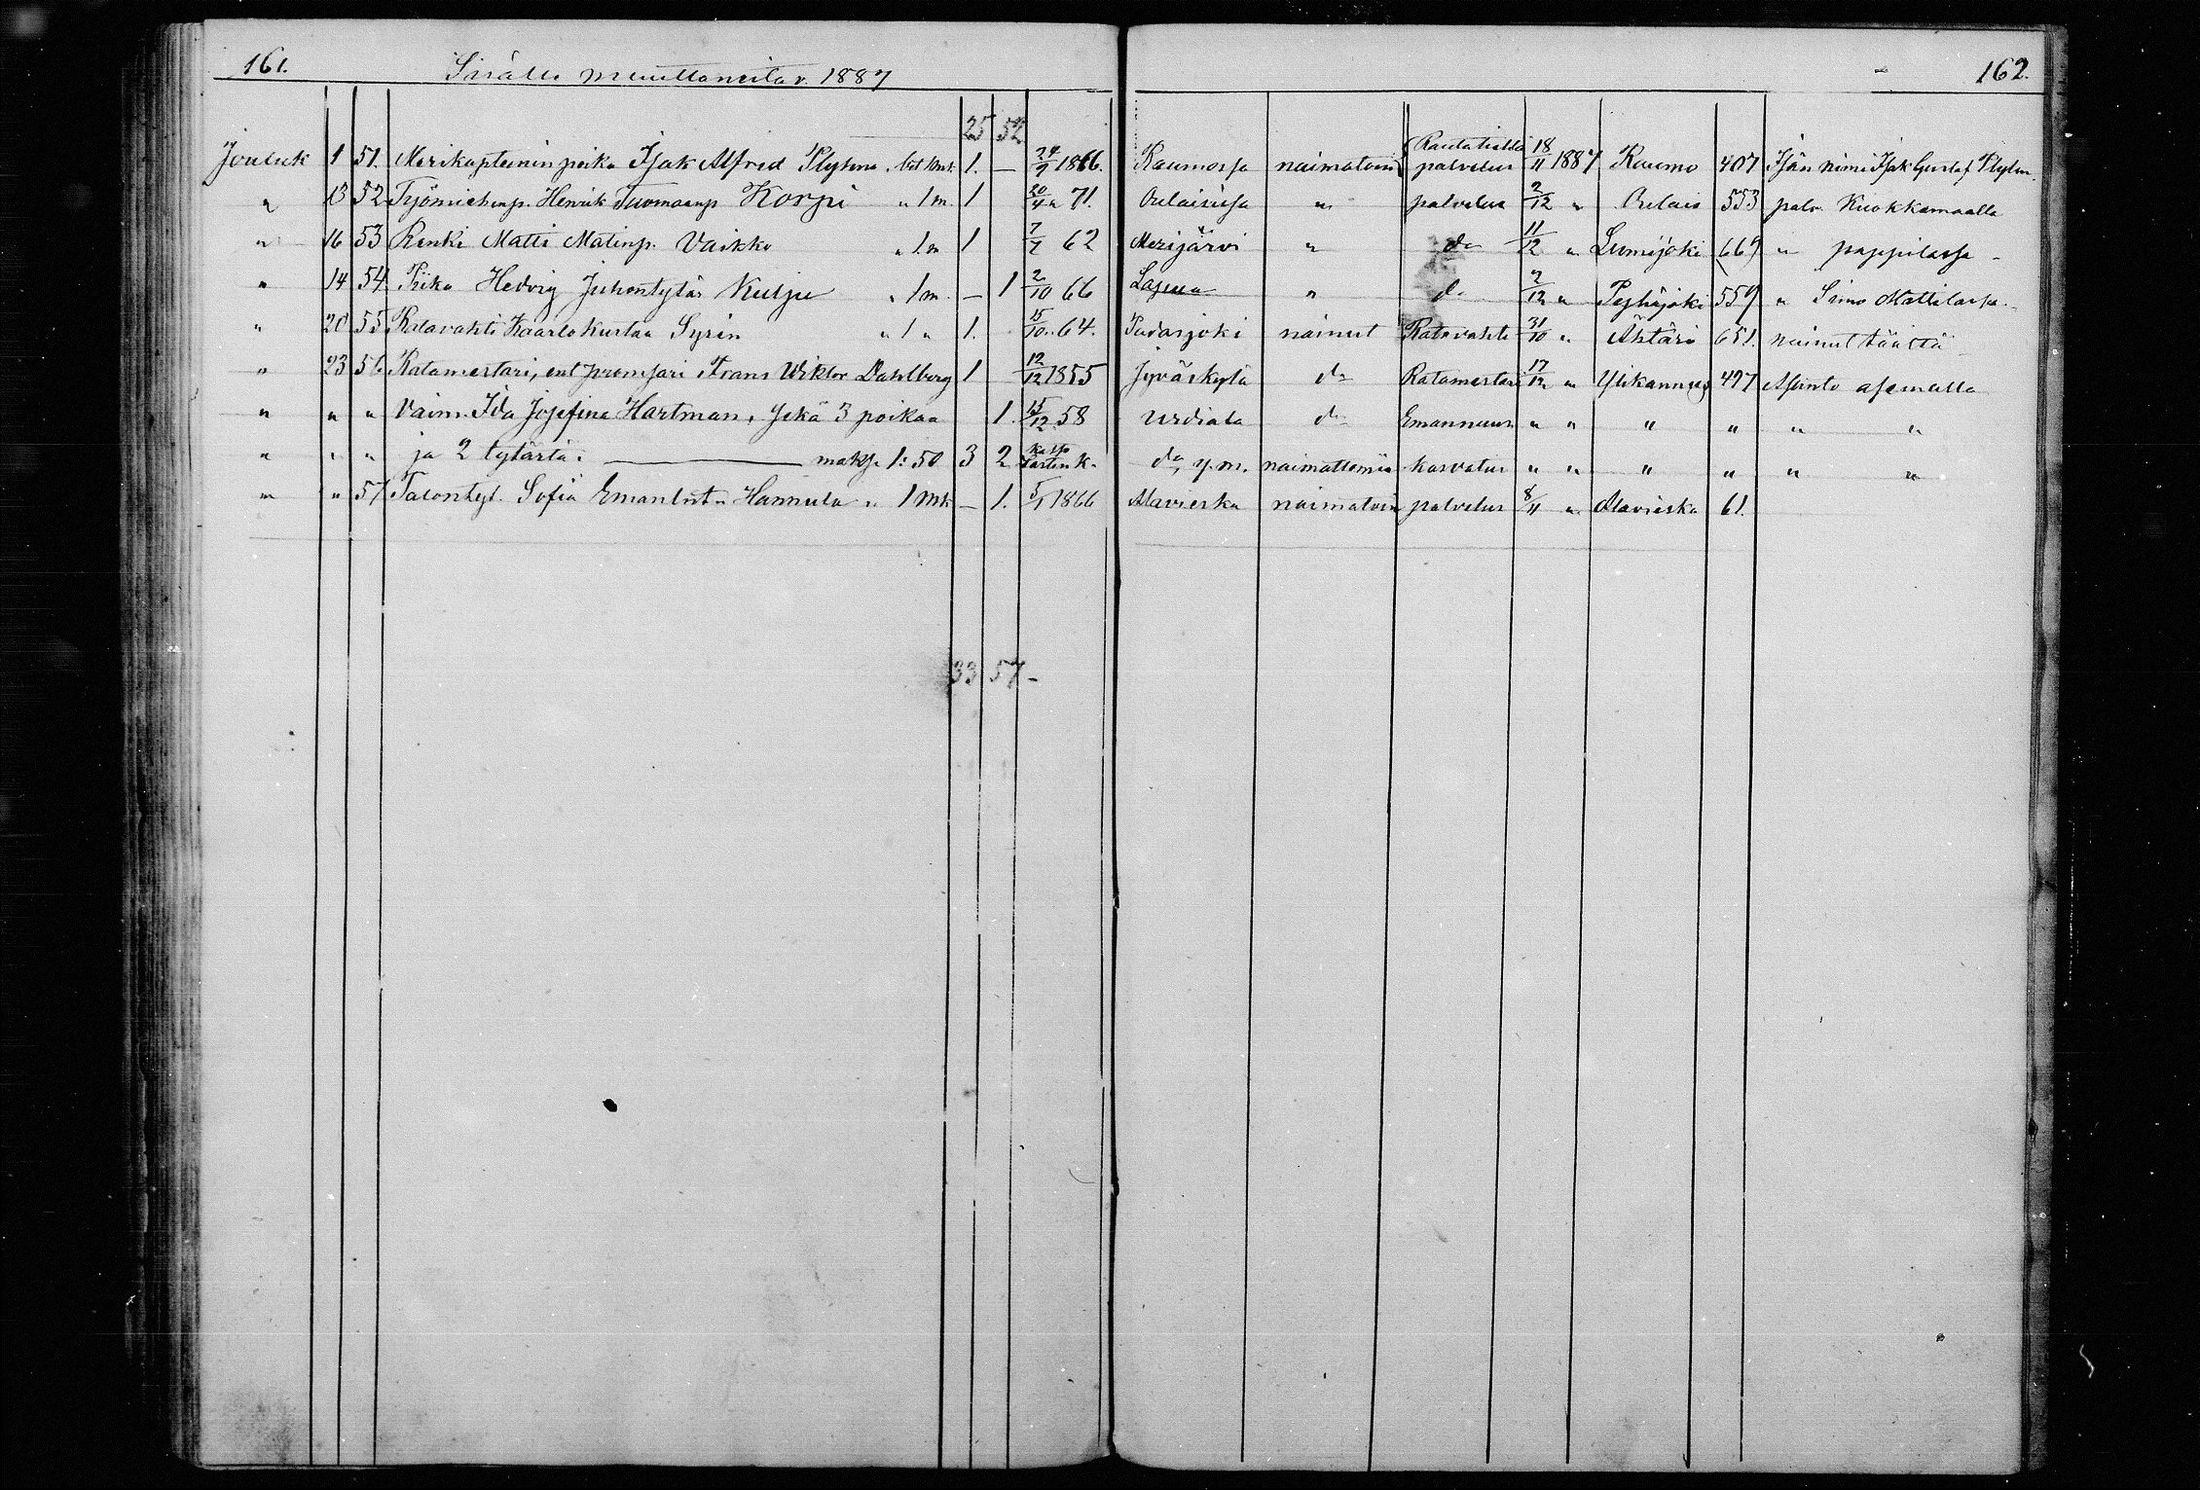 161. Sisälle muuttaneita v. 1887 162.
25 52
Jouluk 1 51. Merikapteenin poika Isak Alfred 1. — 24/9 1866. Raumossa naimatoin Rautatiellä palvelus 18/11 1887 Raumo 407 Isän nimi Isak Gustaf
" 13 52 Työmiehenp. Henrik Tuomaanp Korpi " 1 m. 1 71. Oulaisissa " palvelus 2/12 " Oulais 553 palv. Kuokkamaalla
" 16 53 Renki Matti Matinp. Vaikko " 1 m 1 7/7 62 Merijärvi " do 11/12 " Lumijoki 669 " pappilassa
" 14 54. Piika Hedvig Juhontytär Kulju " 1 m. — 1 2/10 66 Lapua " do 2/12 " Pyhäjoki 559 " Simo Mattilassa
" 20 55 Ratavahti Kaarlo Kustaa Syrén " 1 " 1. 15/10 64. Padasjoki nainut Ratavahti 31/10 " Ähtäri 651. nainut täältä
" 23 56 Ratamestari, ent Frans Wiktor Dahlberg 1 12/12 1855 Jyväskylä do Ratamestari 17/12 " Ylikannus 497 asemalla
" " " Vaim. Ida Josefina Hartman, sekä 3 poikaa 1. 15/12 58 Urdiala do Emännuus " " " " " "
" " " ja 2 tytärtä: maks. 1:50 3 2 katso lastenk. do, y.m. naimattomia kasvatus " " " " " "
" " 57 Talontyt. Sofia Emanlint. Hannula " 1 mk — 1. 5/1 1866 Alavieska naimatoin palvelus 8/11 " Alavieska 61.
33 57 -